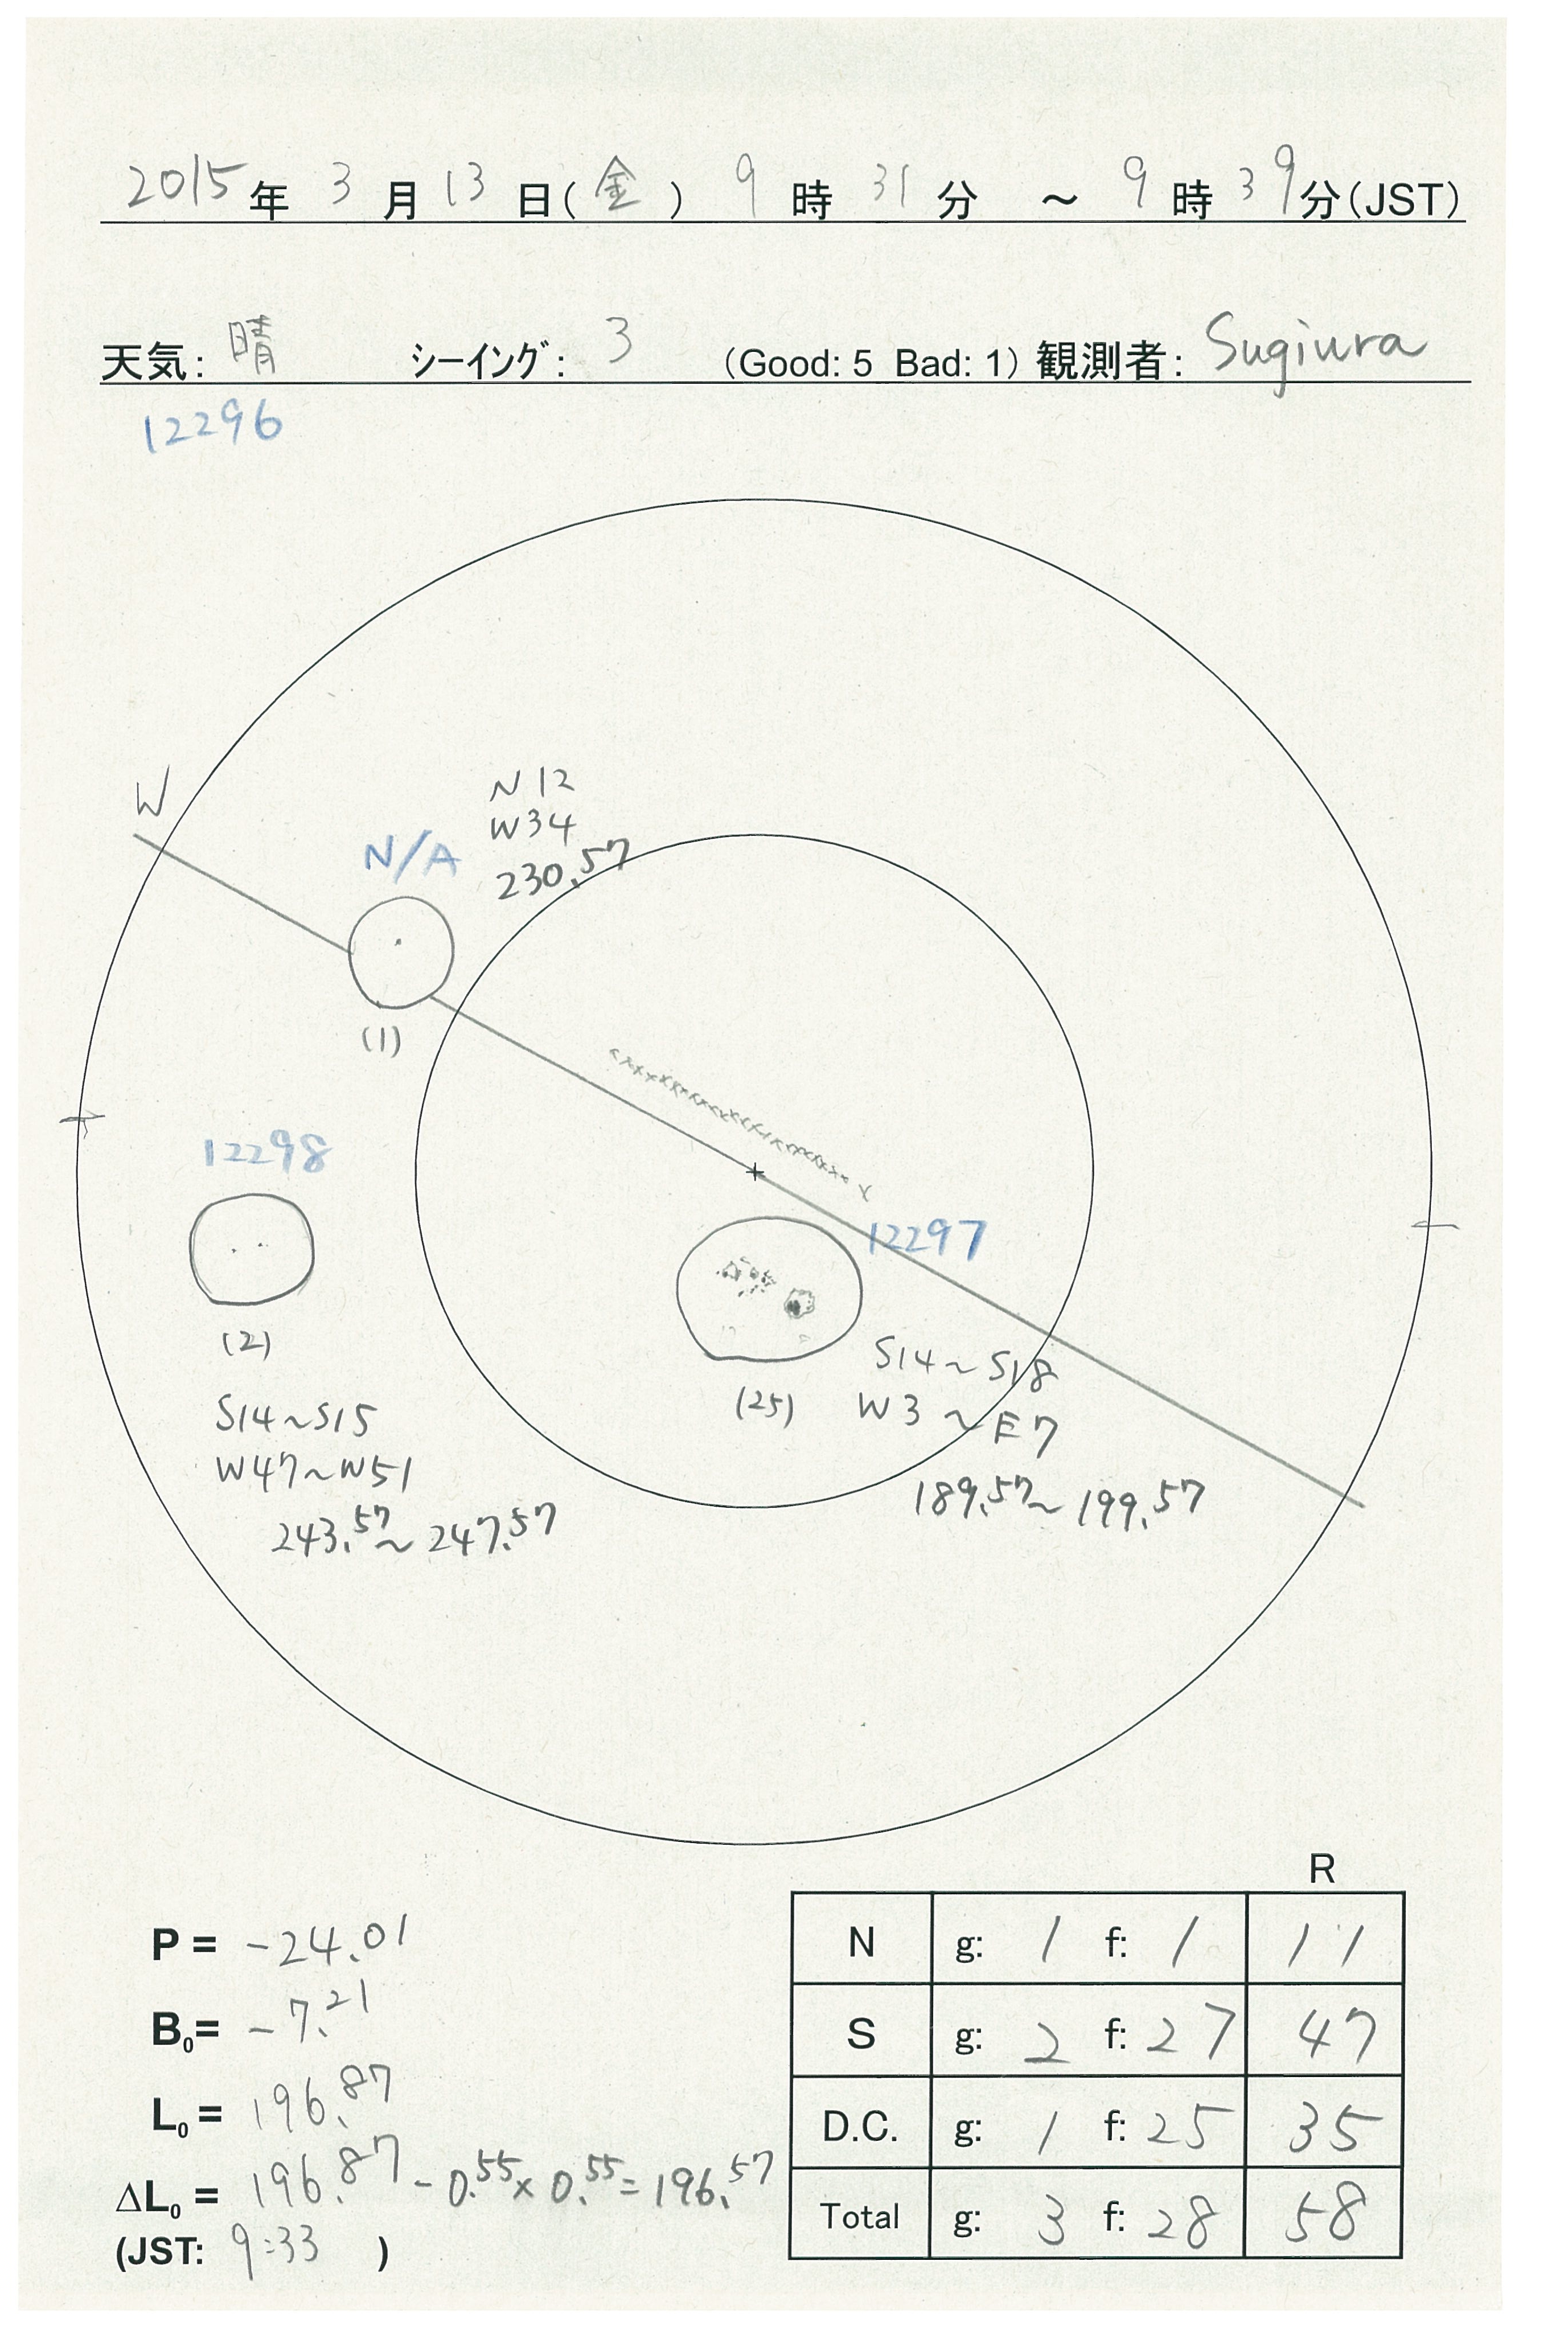 2015年 3月 13日(金) 9時 31分 ～ 9時 39分(JST)
天気: 晴 シーイング: 3 (Good: 5 Bad: 1) 観測者: Sugiura
12296
W
N12
W34
230.57
N/A
(1)
12298
(2)
S14～S15
W47～W51
243.57～247.57
12297
(25)
S14～S18
W3～E7
189.57～199.57
R
P = -24.01
B₀= -7.21
L₀ = 196.87
ΔL₀ = 196.87 - 0.55 × 0.55 = 196.57
(JST: 9:33 )
N g: 1 f: 1 11
S g: 2 f: 27 47
D.C. g: 1 f: 25 35
Total g: 3 f: 28 58